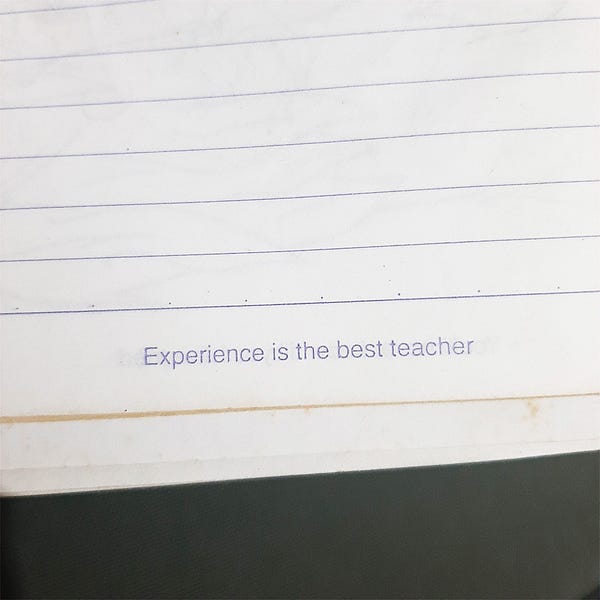 Experience is the best teacher